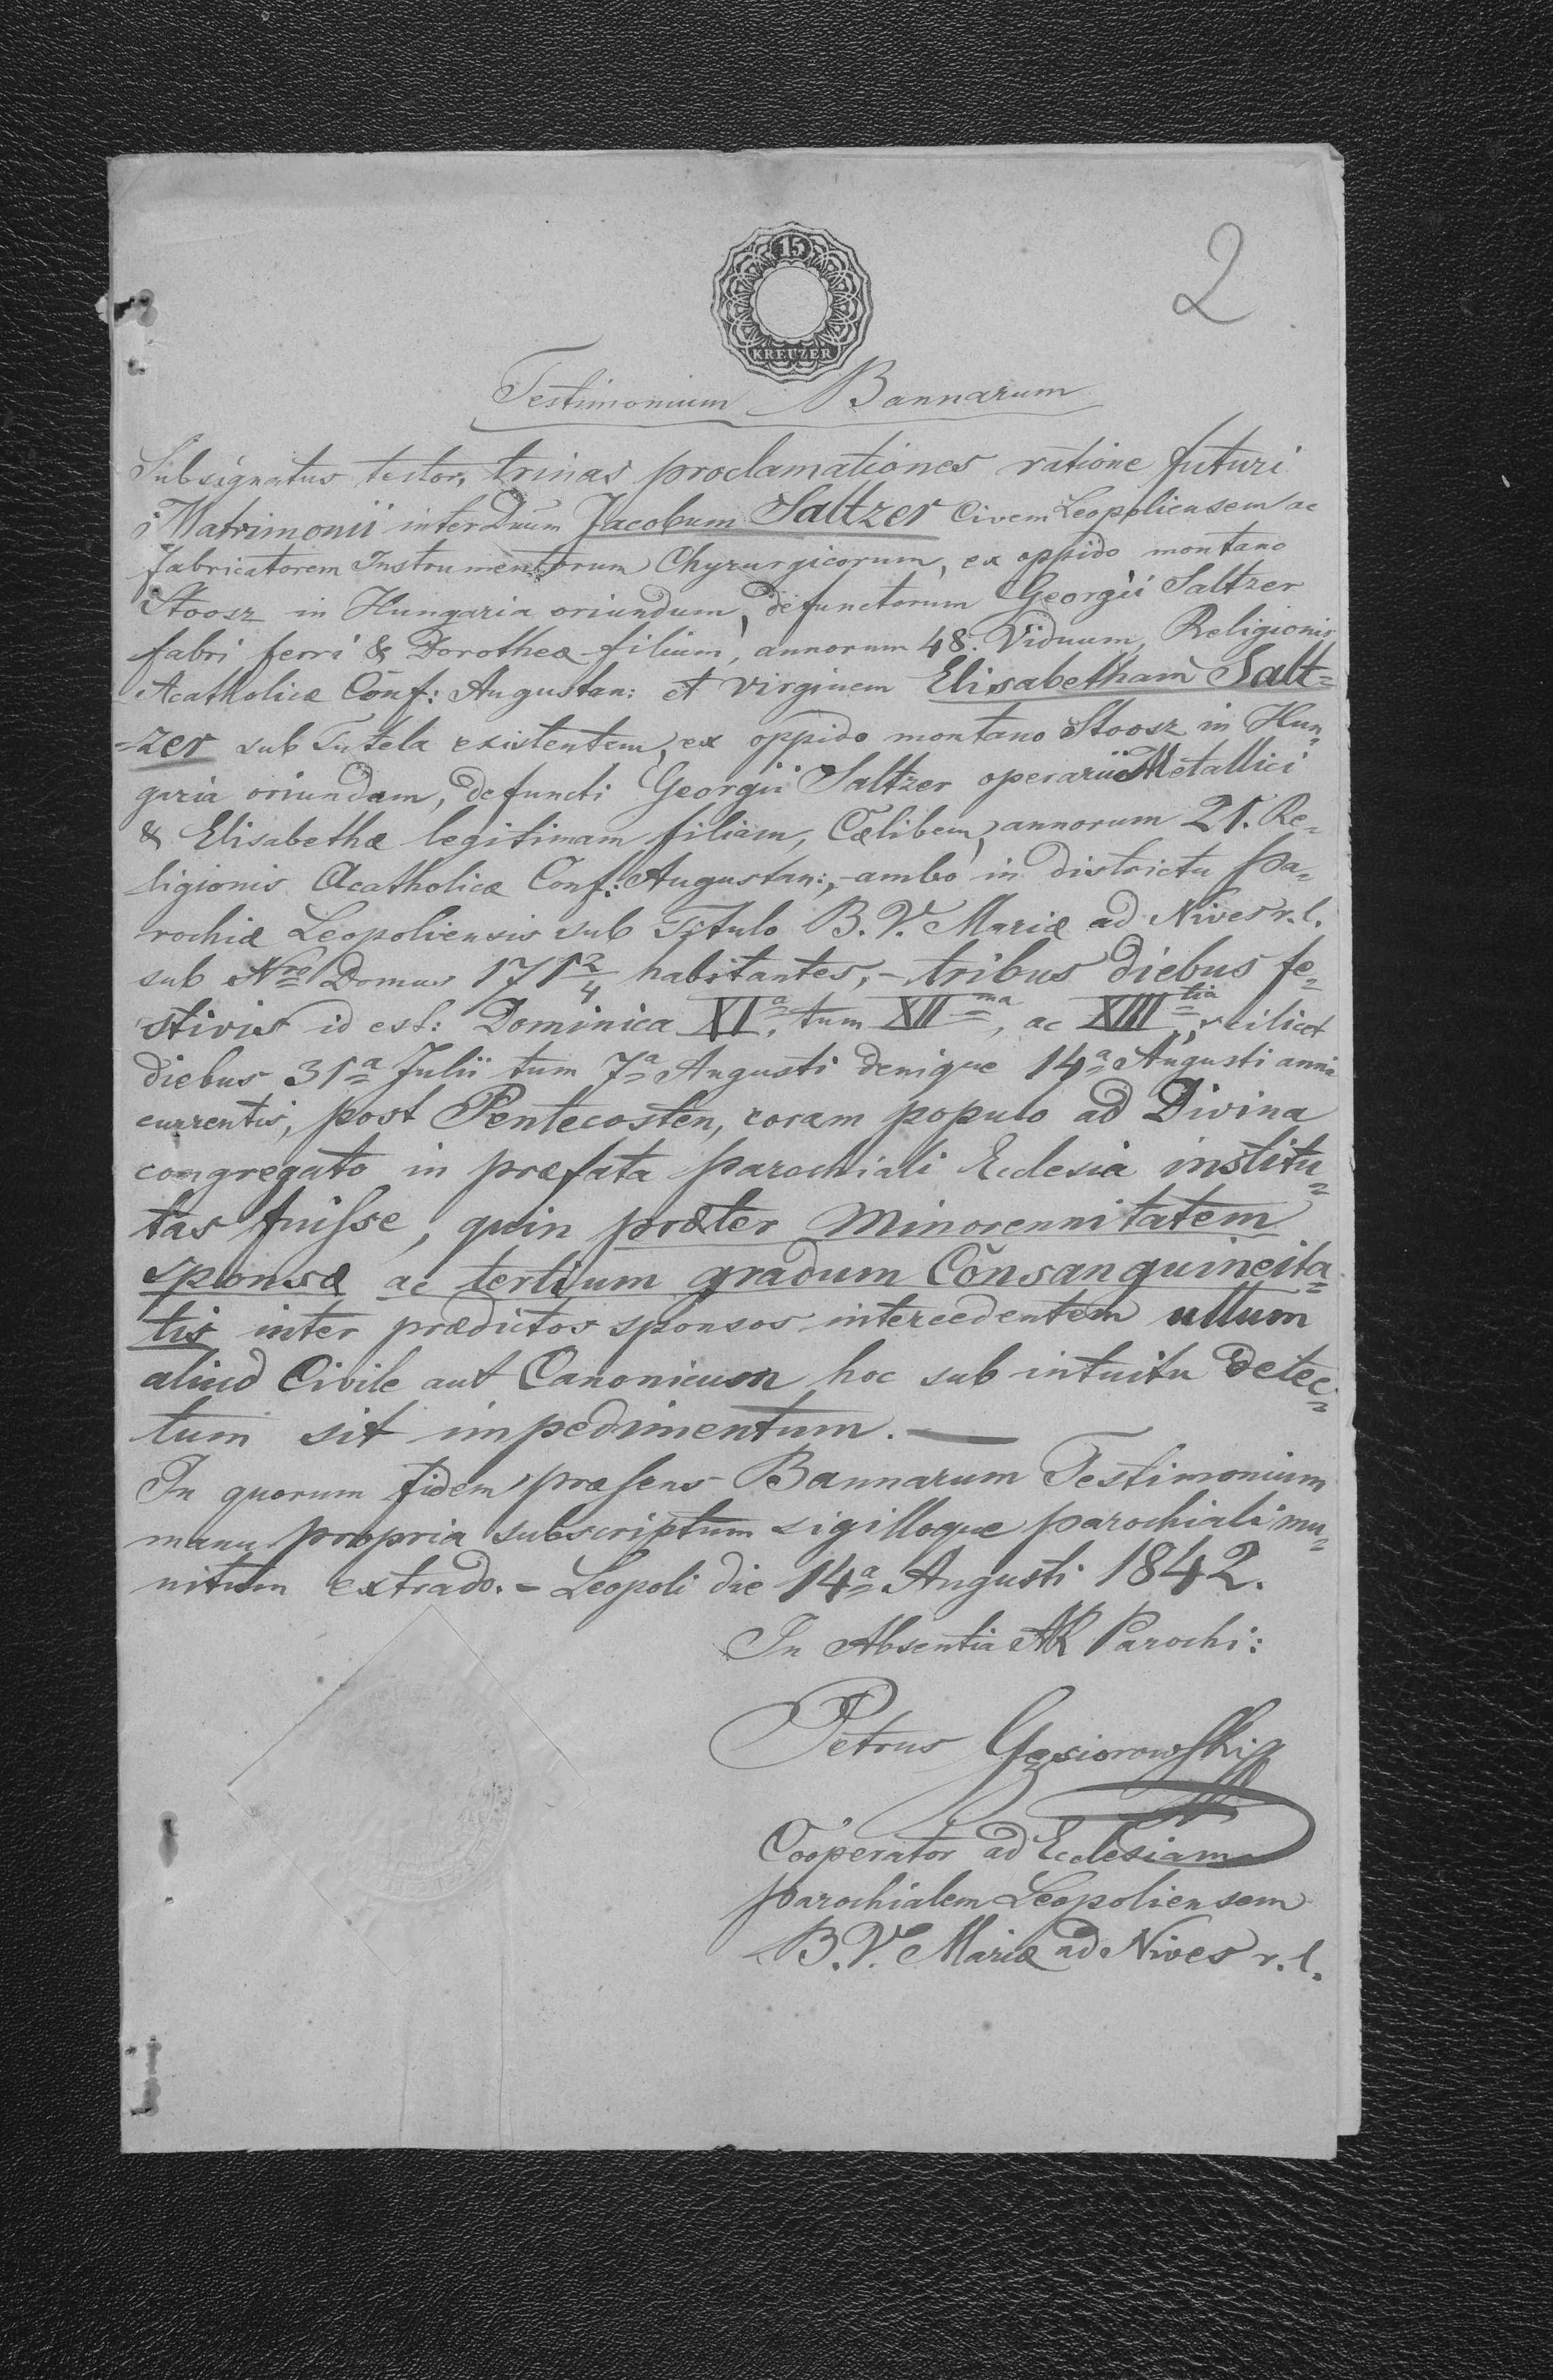 2
15
KREUZER
Testimonium Bannarum
Subsignatus testor, trinas proclamationes ratione futuri
Matrimonii inter Dnum Jacobum Saltzer Civem Leopoliensem ac
fabricatorem Instrumentorum Chyrurgicorum, ex oppido montano
Stoosz in Hungaria oriundum, defunctorum Georgii Saltzer
fabri ferri & Dorotheæ filium, annorum 48. Viduum, Religionis
Acatholicæ Conf: Augustan: et virginem Elisabetham Salt=
=zer sub Tutela existentem, ex oppido montano Stoosz in Hun=
garia oriundam, defuncti Georgii Saltzer operarii Metallici
& Elisabethæ legitimam filiam, Cælibem, annorum 21. Re=
ligionis Acatholicæ Conf: Augustan:, - ambo in districtu Pa=
rochiæ Leopoliensis sub Titulo B. V. Mariæ ad Nives r. l.
sub Nro Domus 171 2/4 habitantes, - tribus diebus fe=
stivis id est: Dominica XIa, tum XIIma, ac XIIItia, scilicet
diebus 31a Julii tum 7a Augusti denique 14a Augusti anni
currentis, post Pentecosten, coram populo ad Divina
congregato in præfata parochiali Ecclesia institu=
tas fuisse, quin præter minorennitatem
sponsæ ac tertium gradum Consanguineita=
tis inter prædictos sponsos intercedentem ullum
aliud Civile aut Canonicum hoc sub intuitu detec=
tum sit impedimentum. —
In quorum fidem præsens Bannarum Testimonium
manu propria subscriptum sigilloque parochiali mu=
nitum extrado. - Leopoli die 14a Augusti 1842.
In Absentia AR Parochi:
Petrus Gąsiorowski
Cooperator ad Ecclesiam
parochialem Leopoliensem
B. V. Mariæ ad Nives r. l.